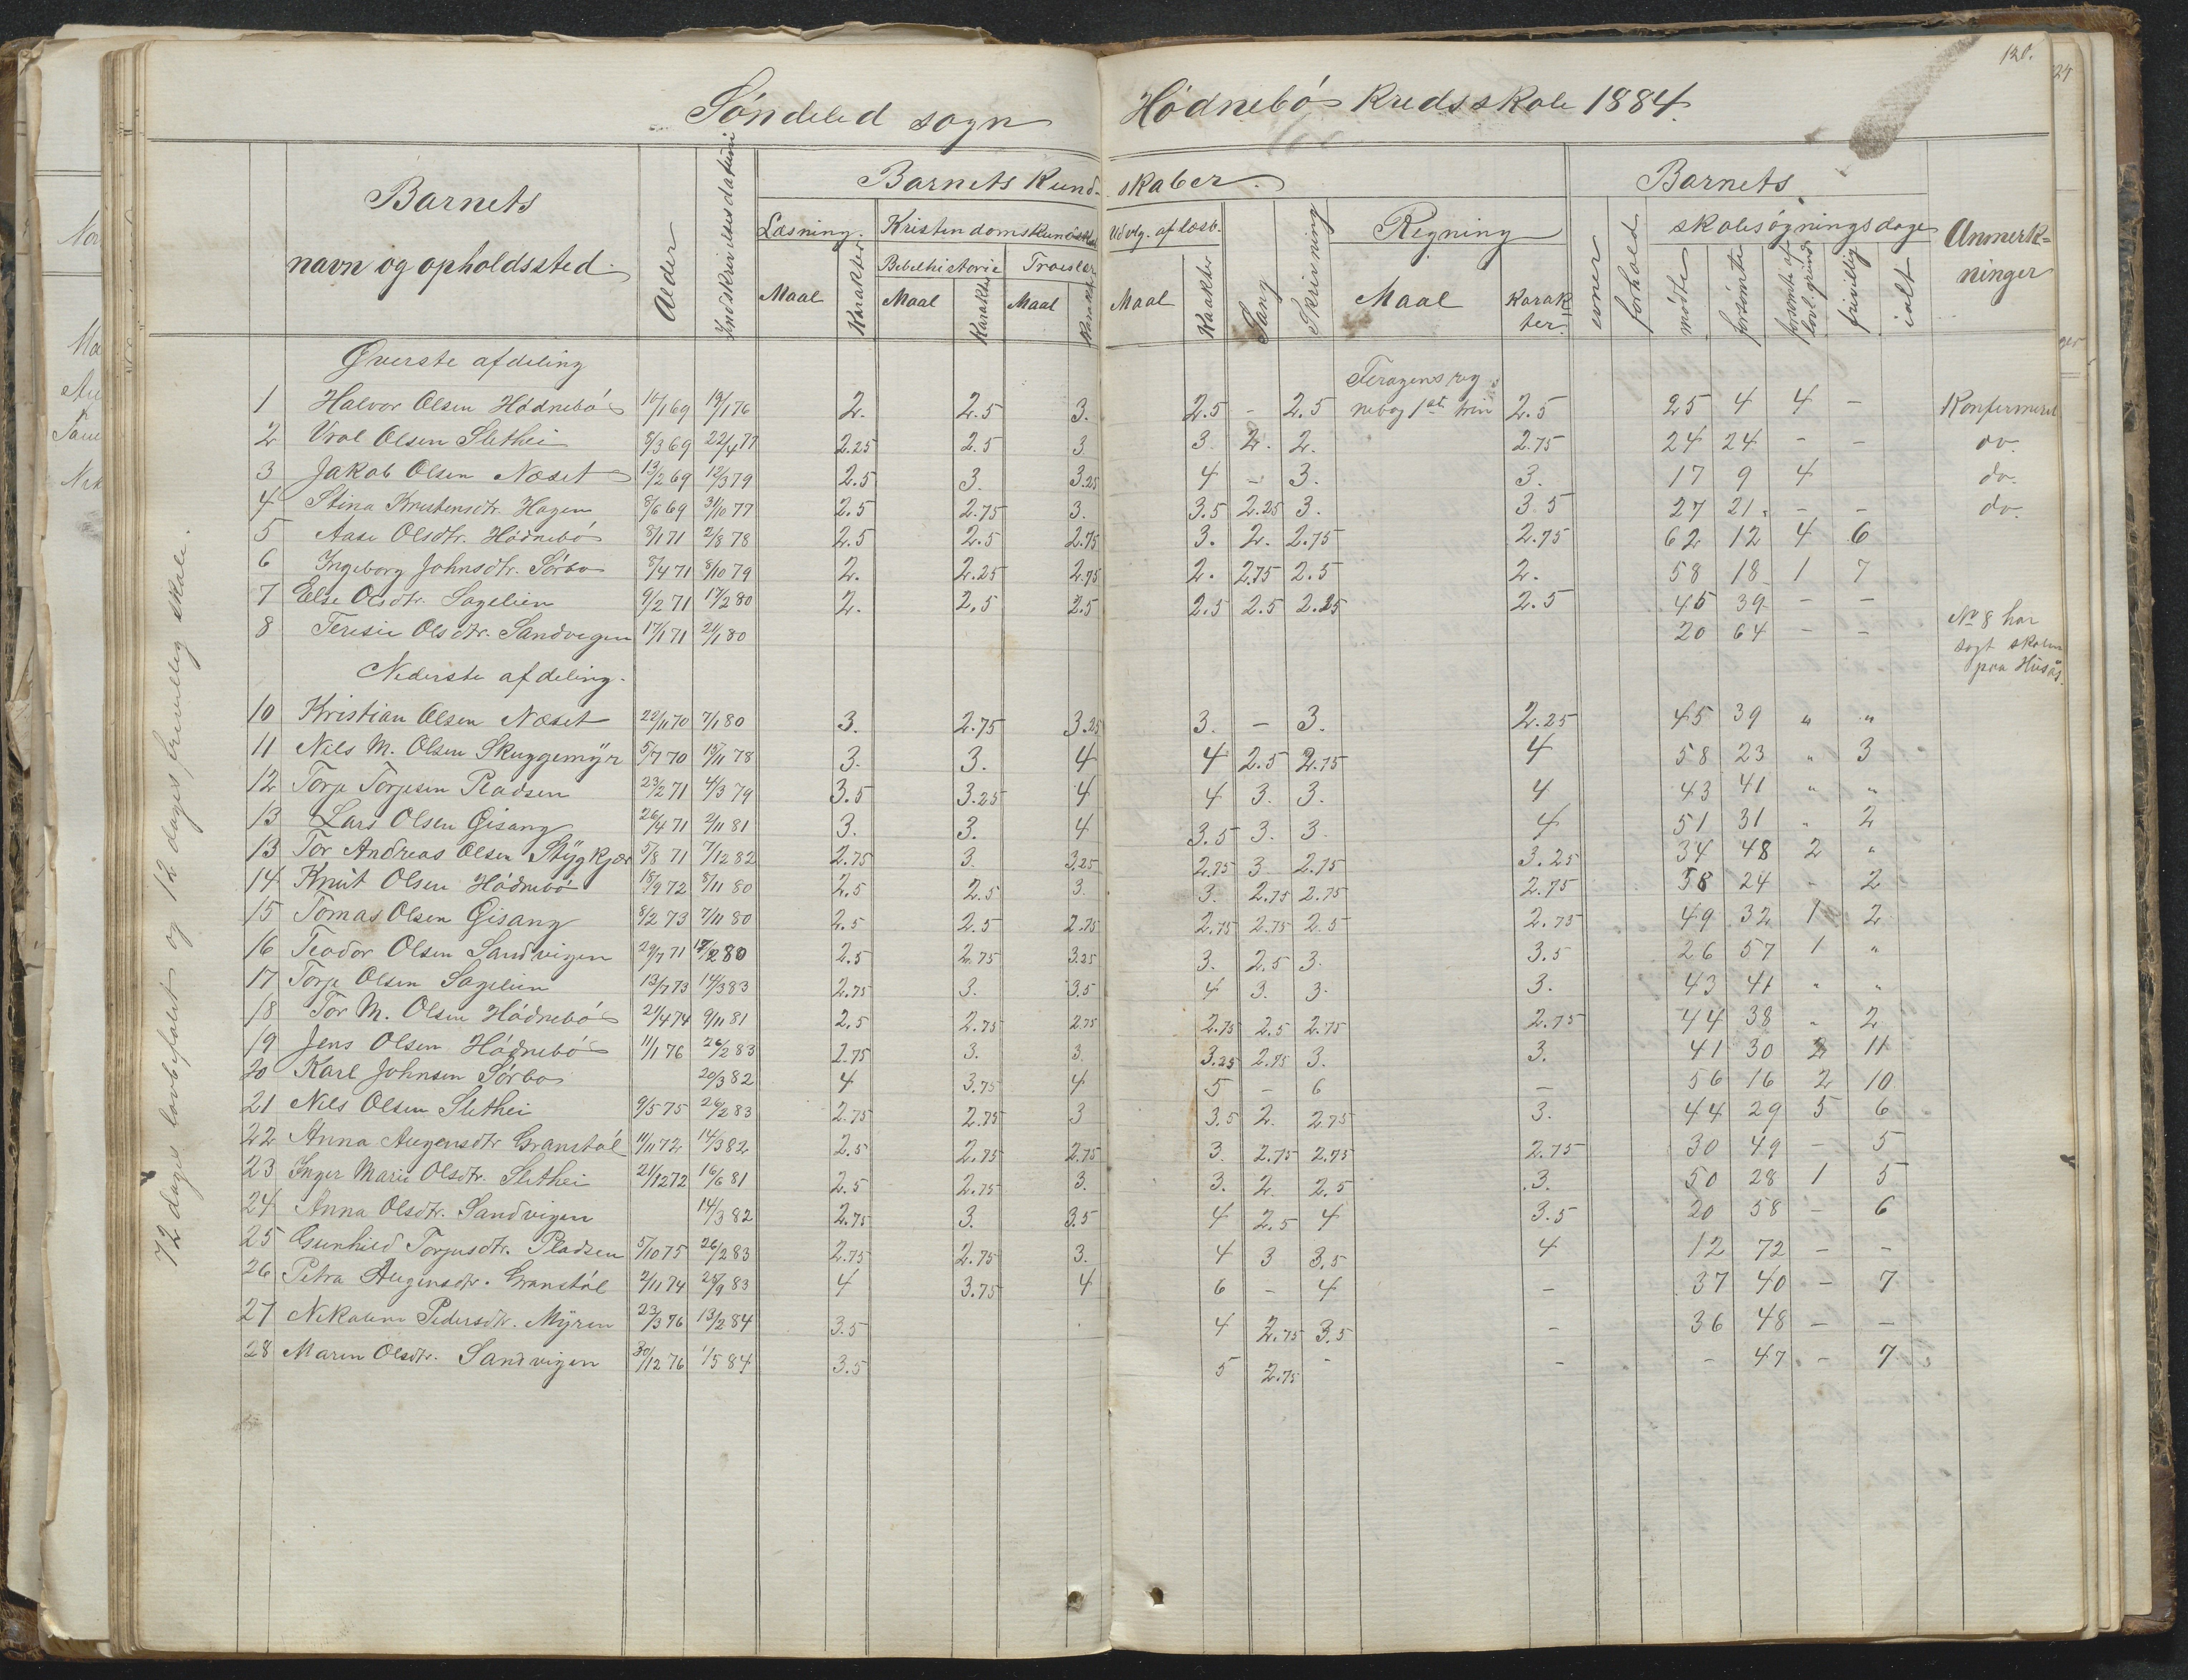 120.
Söndeled sogn Hödnebö Kredsskole 1884.
Barnets navn og opholdssted. Alder Indskrivelsesdatum Barnets Kundskaber. Barnets Anmerkninger
Læsning. Kristendomskundskab Udvlg. af læsb. Sang Skrivning Regning evner forhold skolesøgningsdage
Bibelhistorie Troeslære
Maal Karakter Maal Karakter Maal Karakter Maal Karakter Maal Karakter. mødte forsømte forsømte af lovl. grund frivillig ialt
Øverste afdeling
1 Halvor Olsen Hödnebö 10/1 69 19/1 76 2. 2.5 3. 2.5 - 2.5 nebog 1ste trin 2.5 25 4 4 - Konfirmeret
2 Vrol Olsen Slethei 8/3 69 22/4 77 2.25 2.5 3 3. 2. 2. 2.75 24 24 - - do.
3 Jakob Olsen Næset 13/2 69 12/3 79 2.5 3. 3.25 4 - 3. 3. 17 9 4 do.
4 Stina Kristensdtr. Hagen 8/6 69 31/10 77 2.5 2.75 3. 3.5 2.25 3. 3 5 27 21. - - do.
5 Aase Olsdtr. Hödnebö 8/1 71 2/8 78 2.5 2.5 2.75 3. 2. 2.75 2.75 62 12 4 6
6 Ingeborg Johnsdtr. Sörbo 8/4 71 8/10 79 2. 2.25 2.75 2. 2.75 2.5 2. 58 18 1 7
7 Else Olsdtr. Sagelien 9/2 71 17/2 80 2. 2.5 2.5 2.5 2.5 2.25 2.5 45 39 - -
8 Teresie Olsdtr. Sandvigen 17/1 71 21/1 80 20 64 - - No 8 har
søgt skolen
paa Husås.
Nederste afdeling.
10 Kristian Olsen Næset 22/11 70 7/1 80 3. 2.75 3.25 3. - 3. 2.25 45 39 " "
11 Nils M. Olsen Skuggemyr 5/7 70 15/11 78 3. 3. 4 4 2.5 2.75 4 58 23 " 3
12 Torje Torjesen Pladsen 23/2 71 4/3 79 3.5 3.25 4 4 3. 3. 4 43 41 " "
13 Lars Olsen Gisang 26/4 71 2/11 81 3. 3. 4 3.5 3. 3. 4 51 31 " 2
13 Tor Andreas Olsen Stÿgkjær 5/8 71 7/12 82 2.75 3. 3.25 2.75 3 2.75 3.25 34 48 2 "
14 Knut Olsen Hödnebö 18/9 72 8/11 80 2.5 2.5 3. 3. 2.75 2.75 2.75 58 24 - 2
15 Tomas Olsen Gisang 8/2 73 7/11 80 2.5 2.5 2.75 2.75 2.75 2.5 2.75 49 32 1 2
16 Teodor Olsen Sandvigen 29/7 71 17/2 80 2.5 2.75 3.25 3. 2.5 3. 3.5 26 57 1 "
17 Torje Olsen Sagelien 13/7 73 14/3 83 2.75 3. 3.5 4 3. 3. 3. 43 41 " "
18 Tor M. Olsen Hödnebö 21/4 74 9/11 81 2.5 2.75 2.75 2.75 2.5 2.75 2.75 44 38 " 2
19 Jens Olsen Hödnebö 11/1 76 26/2 83 2.75 3. 3. 3.25 2.75 3. 3. 41 30 2 11
20 Karl Johnsen Sörbo 20/3 82 4 3.75 4 5 - 6 - 56 16 2 10
21 Nils Olsen Slethei 9/5 75 26/2 83 2.75 2.75 3 3.5 2. 2.75 3. 44 29 5 6
22 Anna Augensdtr Granstöl 11/11 72 14/3 82 2.5 2.75 2.75 3. 2.75 2.75 2.75 30 49 - 5
23 Inger Marie Olsdtr. Slethei 21/12 72 16/6 81 2.5 2.75 3. 3. 2. 2.5 3. 50 28 1 5
24 Anna Olsdtr. Sandvigen 14/3 82 2.75 3. 3.5 4 2.5 4 3.5 20 58 - 6
25 Gunhild Torjusdtr. Pladsen 5/10 75 26/2 83 2.75 2.75 3. 4 3 3.5 4 12 72 - -
26 Petra Augensdtr. Granstöl 2/11 74 28/9 83 4 3.75 4 6 - 4 - 37 40 - 7
27 Nikoline Pedersdtr. Mÿren 23/3 76 13/2 84 3.5 4 2.75 3.5 - 36 48 - -
28 Maren Olsdtr. Sandvigen 30/12 76 1/5 84 3.5 5 2.75 - - - 47 - 7
72 dages lovbefalet og 12 dages frivillig skole.